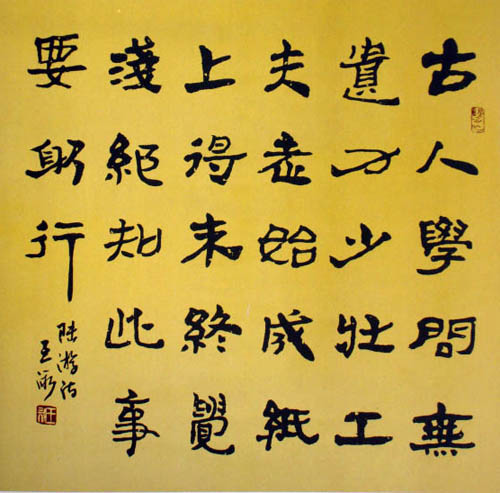 古人學問無
遺力少壯工
夫老始成紙
上得来終覺
淺絕知此事
要躬行
陸游诗
王